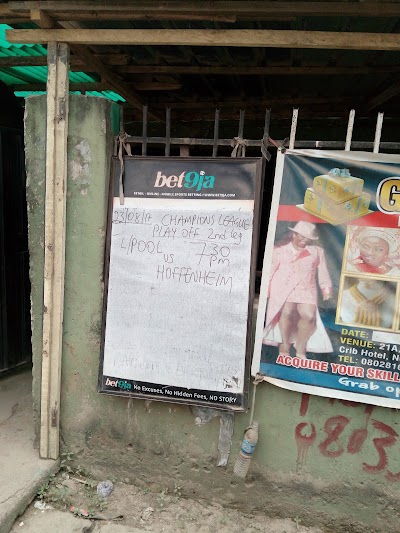 bet9ja
RETAIL - ONLINE - MOBILE SPORTS BETTING
23/08/17 CHAMPIONS LEAGUE
PLAY OFF 2nd leg
L/POOL 7 30
VS pm
HOFFENHEIM
bet9ja No Excuses, No Hidden Fees, NO STORY
G
DATE:
VENUE: 21A,
Crib Hotel, N
TEL: 0802816
ACQUIRE YOUR SKILL
Grab op
0803